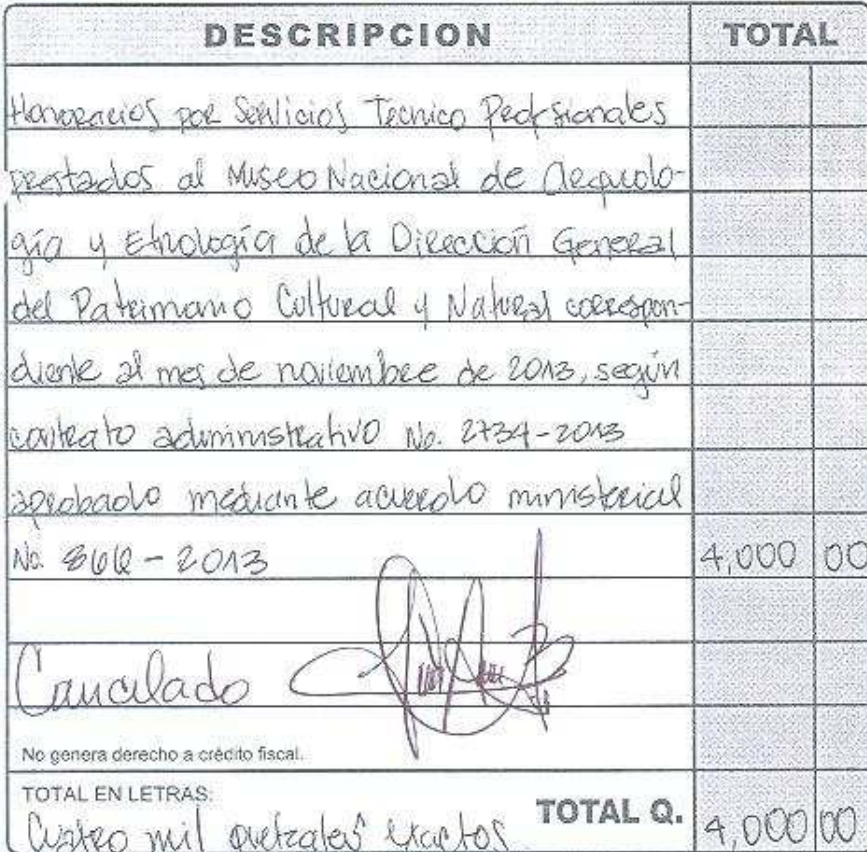 DESCRIPCION TOTAL
Honorarios por Servicios Técnico Profesionales
prestados al Museo Nacional de Arqueolo-
gía y Etnología de la Dirección General
del Patrimonio Cultural y Natural correspon-
diente al mes de noviembre de 2013, según
contrato administrativo No. 2734-2013
aprobado mediante acuerdo ministerial
No. 866-2013 4,000 00
Cancelado
No genera derecho a crédito fiscal.
TOTAL EN LETRAS:
Cuatro mil quetzales exactos TOTAL Q. 4,000 00